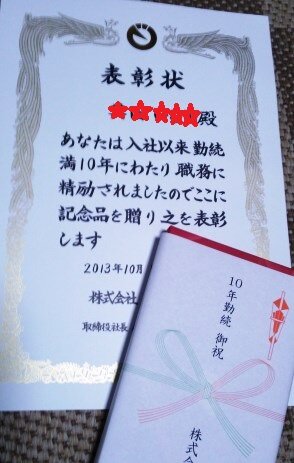 表彰状
殿
あなたは入社以来勤続
満10年にわたり職務に
精励されましたのでここに
記念品を贈り之を表彰
します
2013年10月
株式会社
取締役社長
10年勤続 御祝
株式会